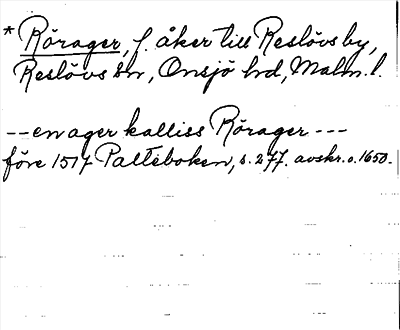 * Rörager, f. åker till Reslövs by,
Reslövs sn, Onsjö hd, Malm. l.
-- en ager kalliss Rörager ---
före 1517 Palteboken, s. 277. avskr. o. 1650.